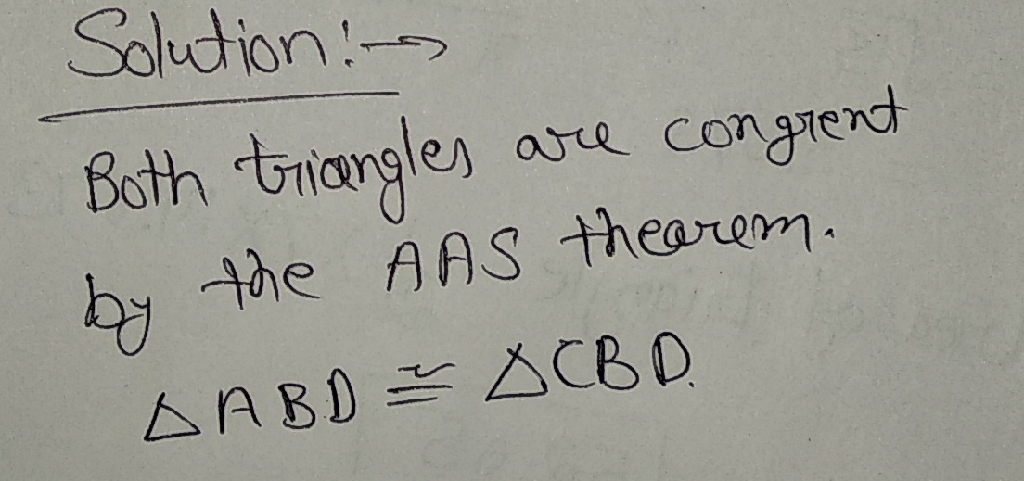 Solution:→
Both triangles are congrent
by the AAS thearem.
△ABD ≅ △CBD.